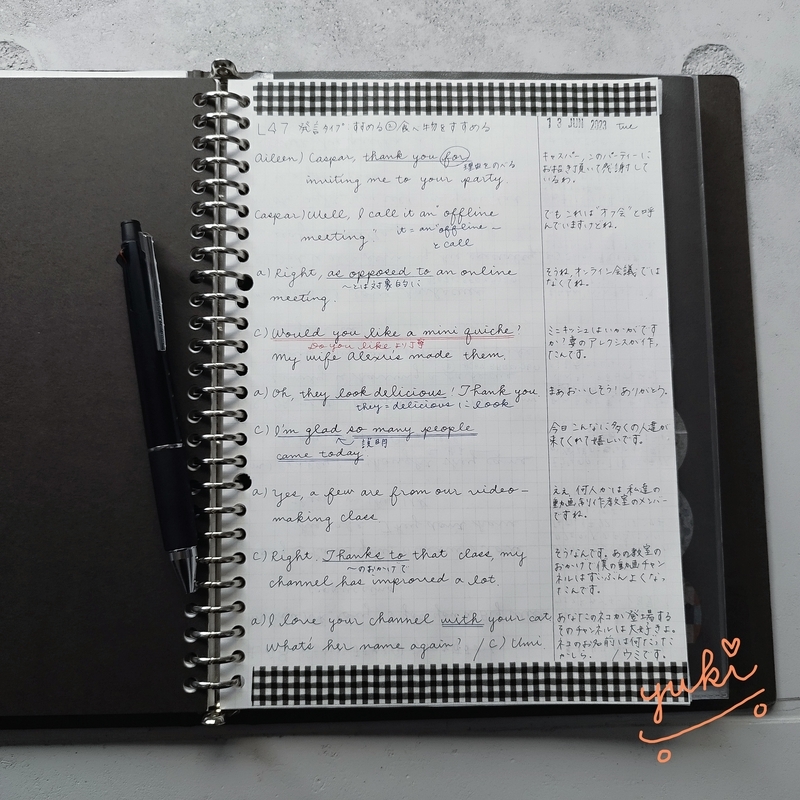 L47 発言タイプ すすめる① 食べ物をすすめる
13 JUN 2023 Tue
Aileen) Caspar, thank you for
理由をのべる
inviting me to your party.
キャスパー、このパーティーに
お招き頂いて感謝して
いるわ。
Caspar) Well, I call it an "offline
meeting."
it = an "offline –
と call
でもこれは"オフ会"と呼
んでいますけどね。
a) Right, as opposed to an online
〜とは対象的に
meeting.
そうね、オンライン会議ではなくてね。
C) Would you like a mini quiche?
Do you like より丁寧
my wife Alexis made them.
ミニキッシュはいかがです
か? 妻のアレクシスが作っ
たんです。
a) Oh, they look delicious! Thank you
they = delicious に look
まあおいしそう! ありがとう。
C) I'm glad so many people
説明
came today
今日こんなに多くの人達が
来てくれて嬉しいです。
a) Yes, a few are from our video-
making class
ええ、何人かは私達の
動画制作教室のメンバー
ですね。
C) Right. Thanks to that class, my
〜のおかげで
channel has improved a lot.
そうなんです。あの教室の
おかげで僕の動画チャン
ネルはずいぶんよくなっ
たんです。
a) I love your channel with your cat.
What's her name again? / C) Umi.
あなたのネコが登場する
そのチャンネルは大好きよ。
ネコのお名前は何だった
かしら。 / ウミです。
yuki